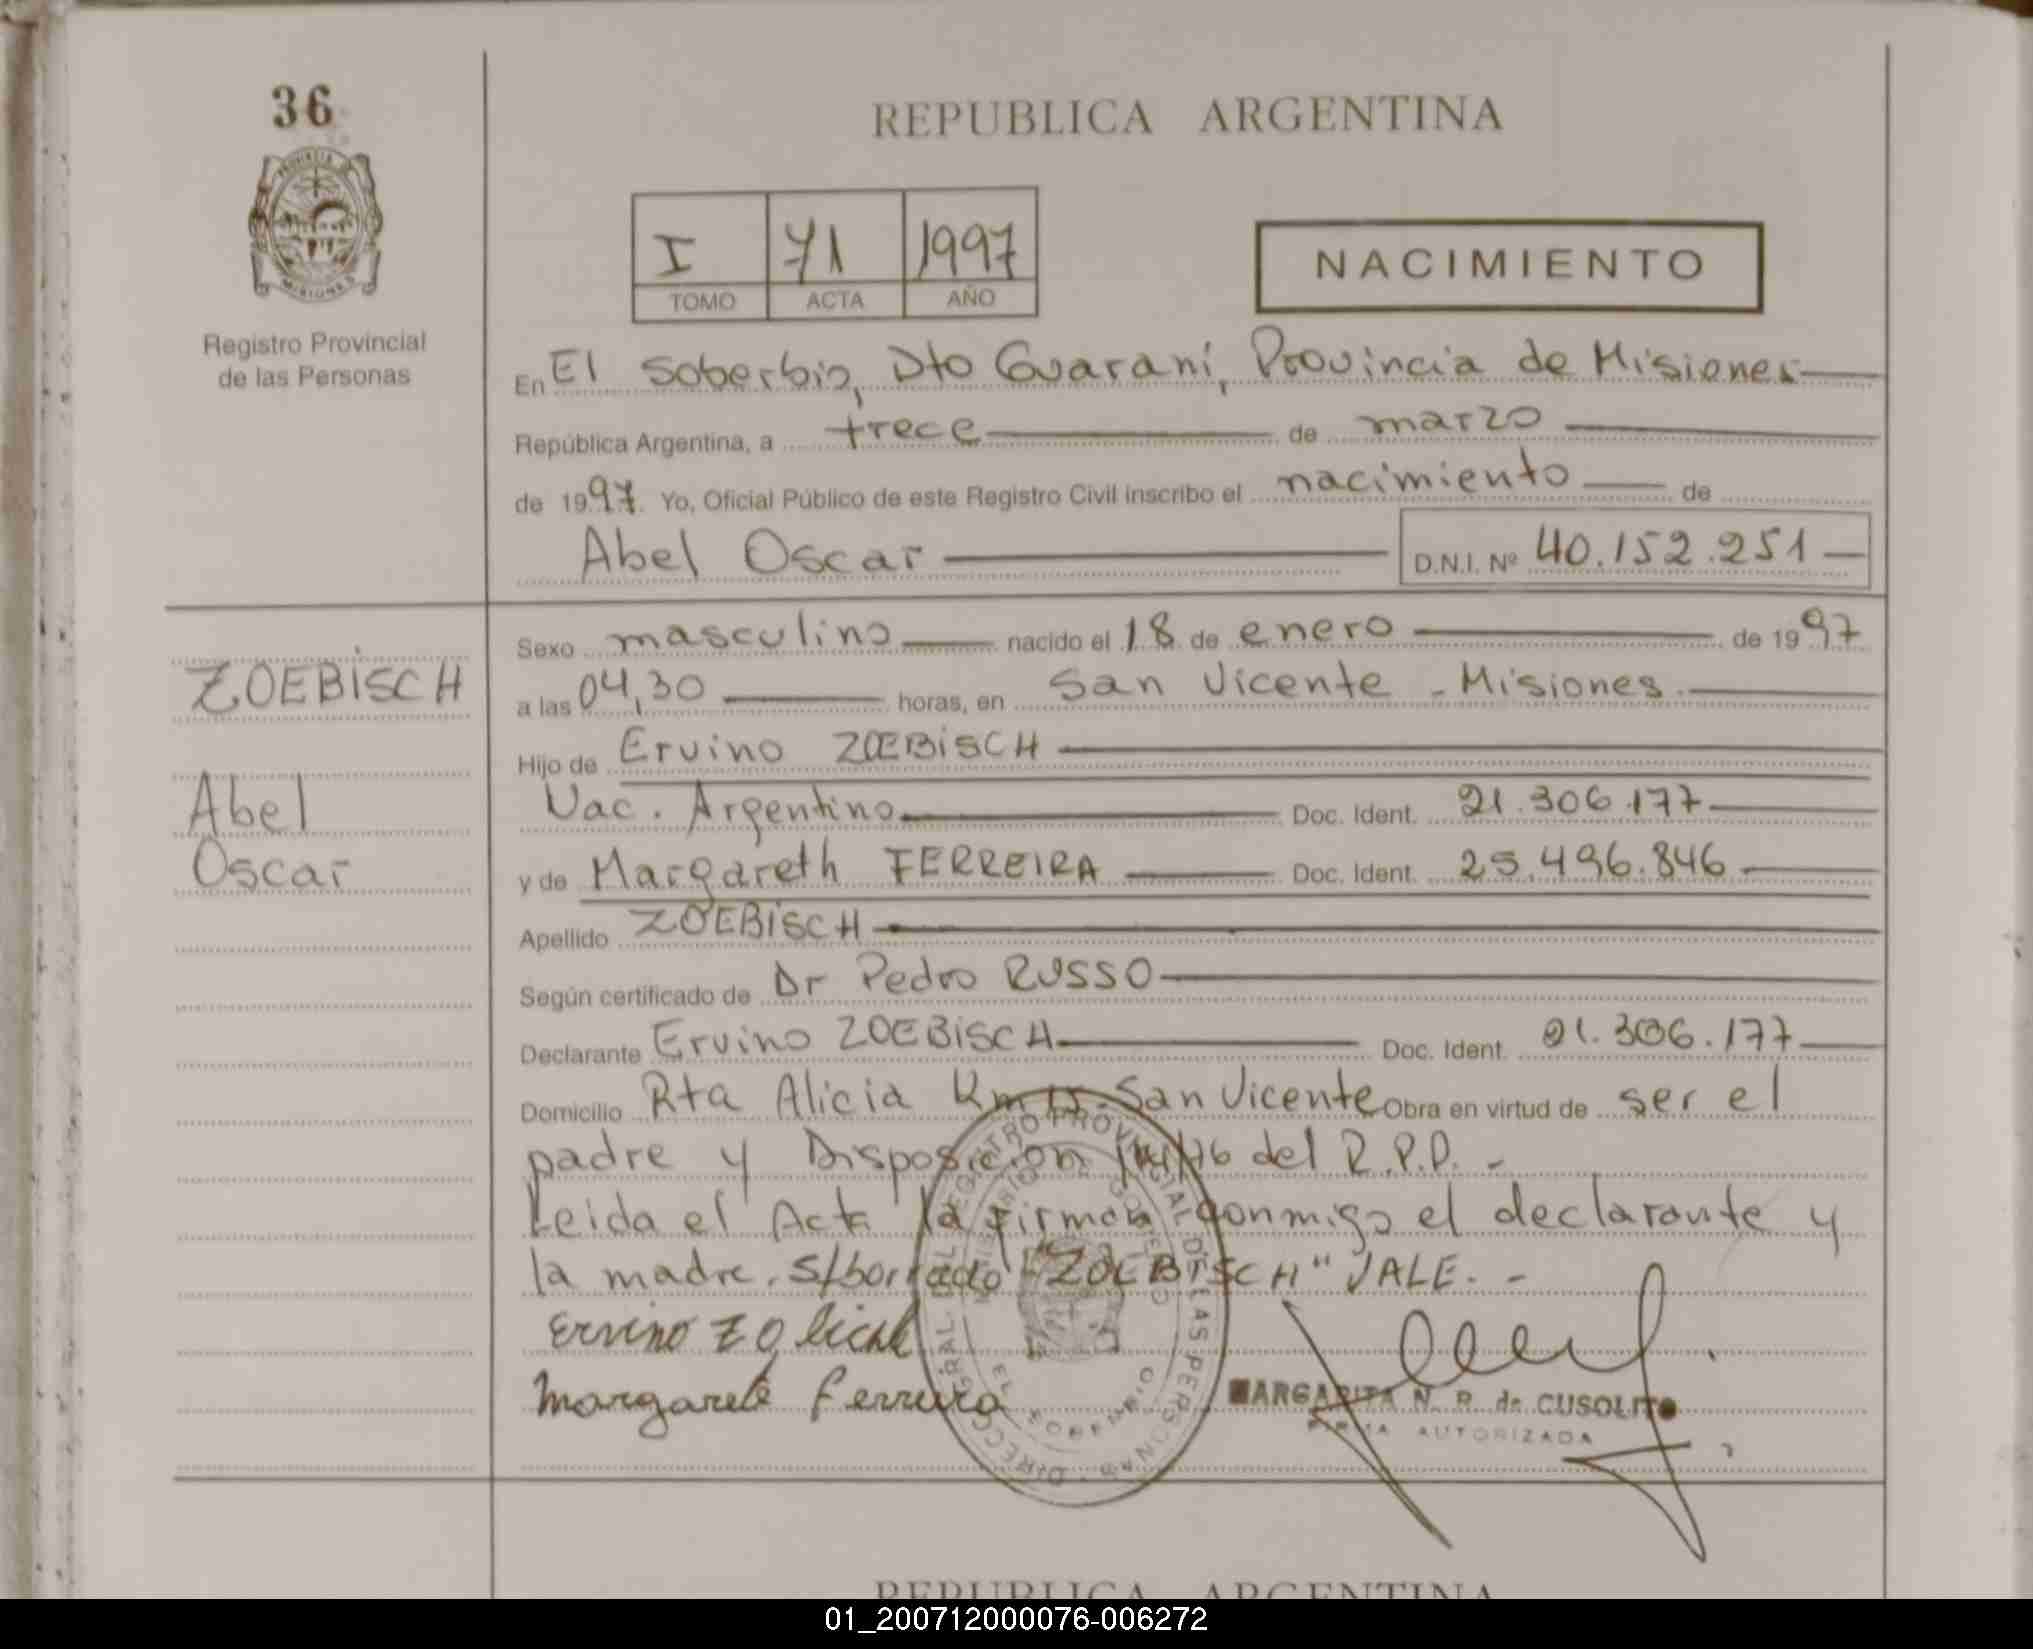 36
PROVINCIA DE
MISIONES
Registro Provincial
de las Personas
REPUBLICA ARGENTINA
I 71 1997
TOMO ACTA AÑO
NACIMIENTO
En El Soberbio, Dto Guaraní, Provincia de Misiones
República Argentina, a trece de marzo
de 1997. Yo, Oficial Público de este Registro Civil inscribo el nacimiento de
Abel Oscar D.N.I. Nº 40.152.251
ZOEBISCH
Abel
Oscar
Sexo masculino nacido el 18 de enero de 1997
a las 04,30 horas, en San Vicente - Misiones.
Hijo de Ervino ZOEBISCH
Nac. Argentino Doc. Ident. 21.306.177
y de Margareth FERREIRA Doc. Ident. 25.496.846
Apellido ZOEBISCH
Según certificado de Dr Pedro RUSSO
Declarante Ervino ZOEBISCH Doc. Ident. 21.306.177
Domicilio Rta Alicia Km 15. San Vicente Obra en virtud de ser el
padre y Disposición del R.P.P. -
Leida el Acta la firman conmigo el declarante y
la madre. S/borrado "ZOEBISCH" VALE. -
Ervino
Margarete Ferreira
DIRECC. GRAL. DEL REGISTRO PROVINCIAL DE LAS PERSONAS
MINISTERIO DE GOBIERNO
EL SOBERBIO
MARGARITA N. R. de CUSOLITO
FIRMA AUTORIZADA
REPUBLICA ARGENTINA
01_200712000076-006272